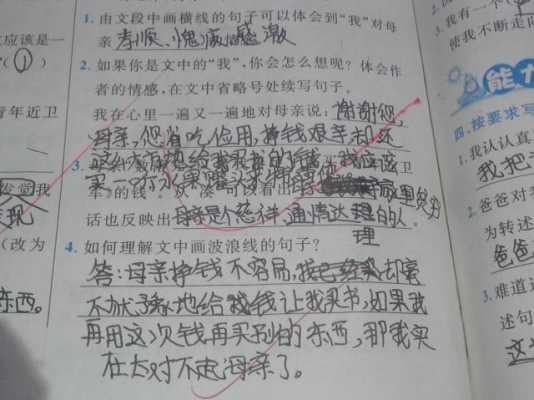 1. 由文段中画横线的句子可以体会到“我”对母
亲 孝顺、愧疚、感激
2. 如果你是文中的“我”,你会怎么想呢?体会作
者的情感,在文中省略号处续写句子。
我在心里一遍又一遍地对母亲说: 谢谢您,
母亲,您省吃俭用,挣钱很辛却还
买一
3.
话也反映出 母亲是个慈祥、通情达理的人
理
4. 如何理解文中画波浪线的句子?
答:母亲挣钱不容易,我 却毫
不犹豫地给我钱让我买书,如果我
再用这次钱再买别的东西,那我实
在太对不起母亲了。
应该是一
(1)
年近卫
发觉 我
发现
(改为
东西。
3. 我有一个
使我不断走
能
四、按要求写
1. 我认认真
我把
2. 爸爸对
为转述
爸爸
3. 难道
述句
这